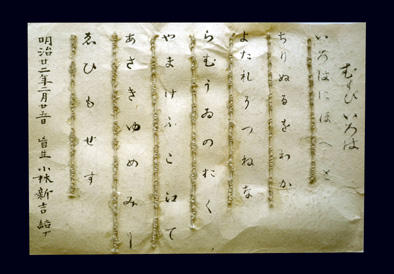 むすび いろは
いろはにほへと
ちりぬるをわか
よたれそつねな
らむうゐのおく
やまけふこえて
あさきゆめみし
ゑひもせす
明治廿二年二月廿 盲生 小林新吉